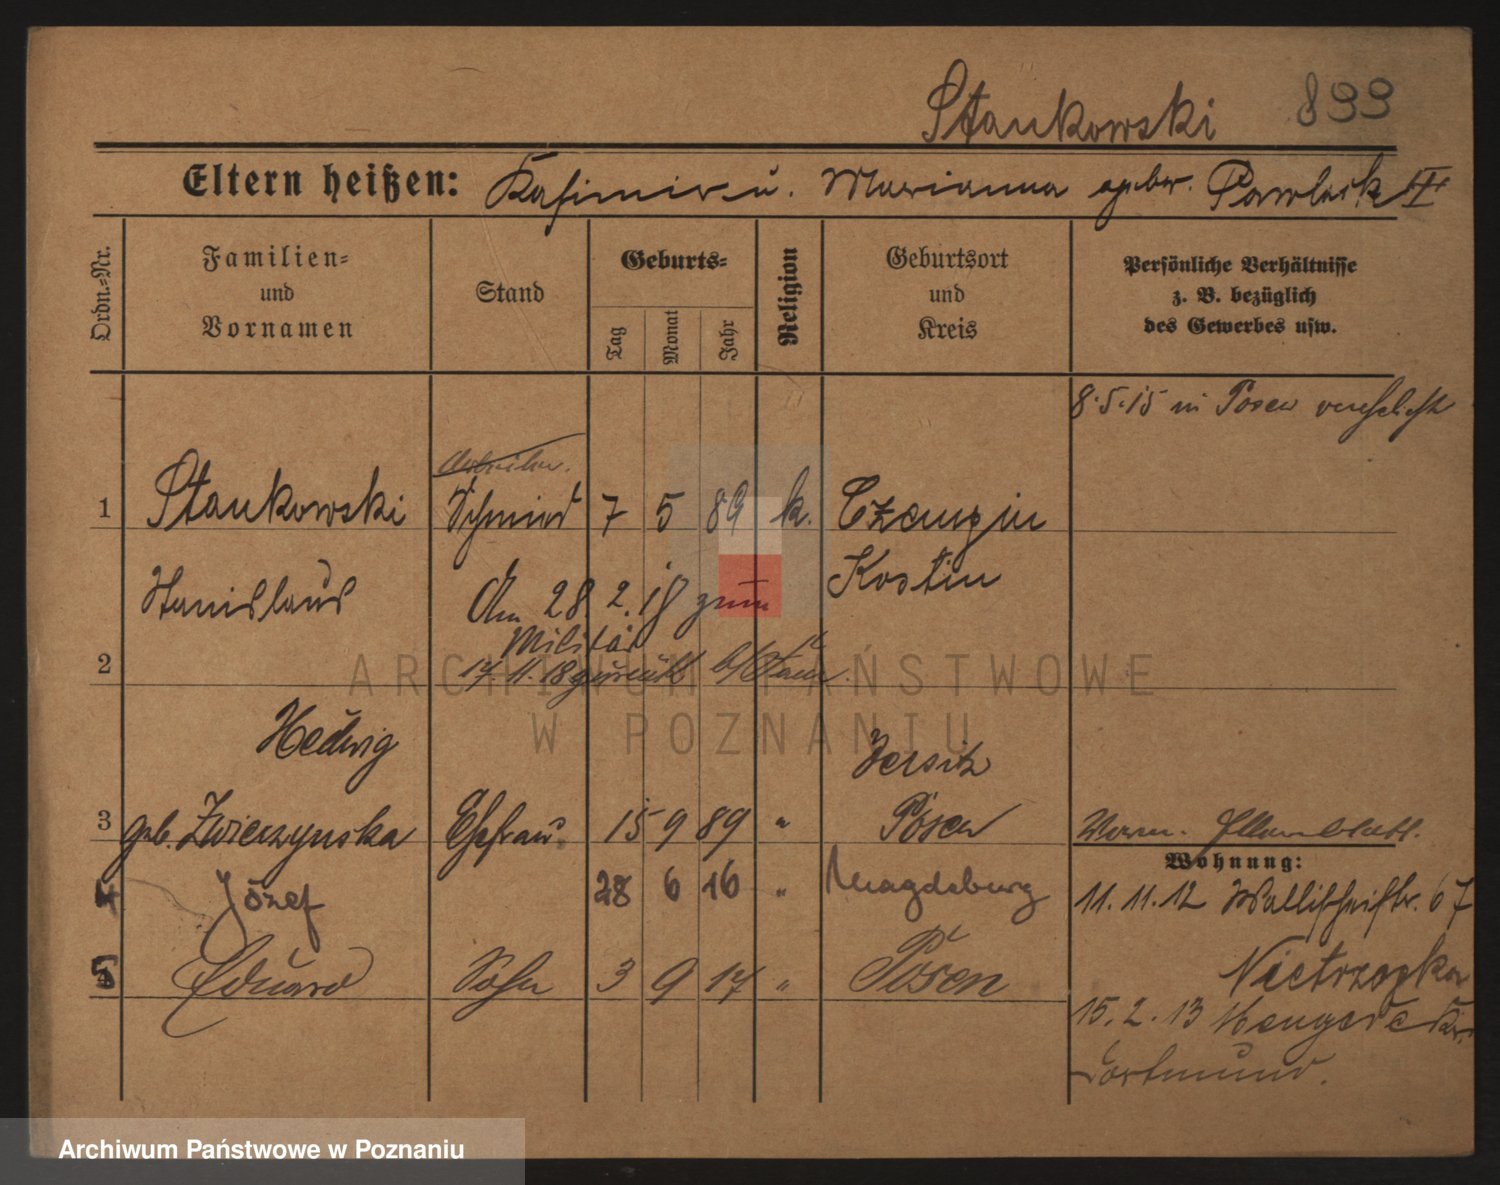 Stankowski 899
Eltern heißen: Kasimir u. Marianna geber. Pawlack III
Ordn.=Nr.
Familien=
und
Vornamen
Stand
Geburts=
Tag
Monat
Jahr
Religion
Geburtsort
und
Kreis
Persönliche Verhältnisse
z. B. bezüglich
des Gewerbes usw.
8.5.15 in Posen verehelicht
Arbeiter.
1 Stankowski Schmied 7 5 89 k. Czempin
Stanislaus Kosten
Am 28 2.18 zum
Militär
2 17.11.18 zurück
Hedwig Jersitz
3 geb. Zwierzynska Ehefrau 15 9 89 " Posen
Wohnung:
4 Józef 28 6 16 " Magdeburg 11.11.12 Wallischeistr. 67
5 Eduard Sohn 3 9 17 " Posen
15.2.13 Mengede Kr.
Dortmund.
ARCHIWUM PAŃSTWOWE
W POZNANIU
Archiwum Państwowe w Poznaniu